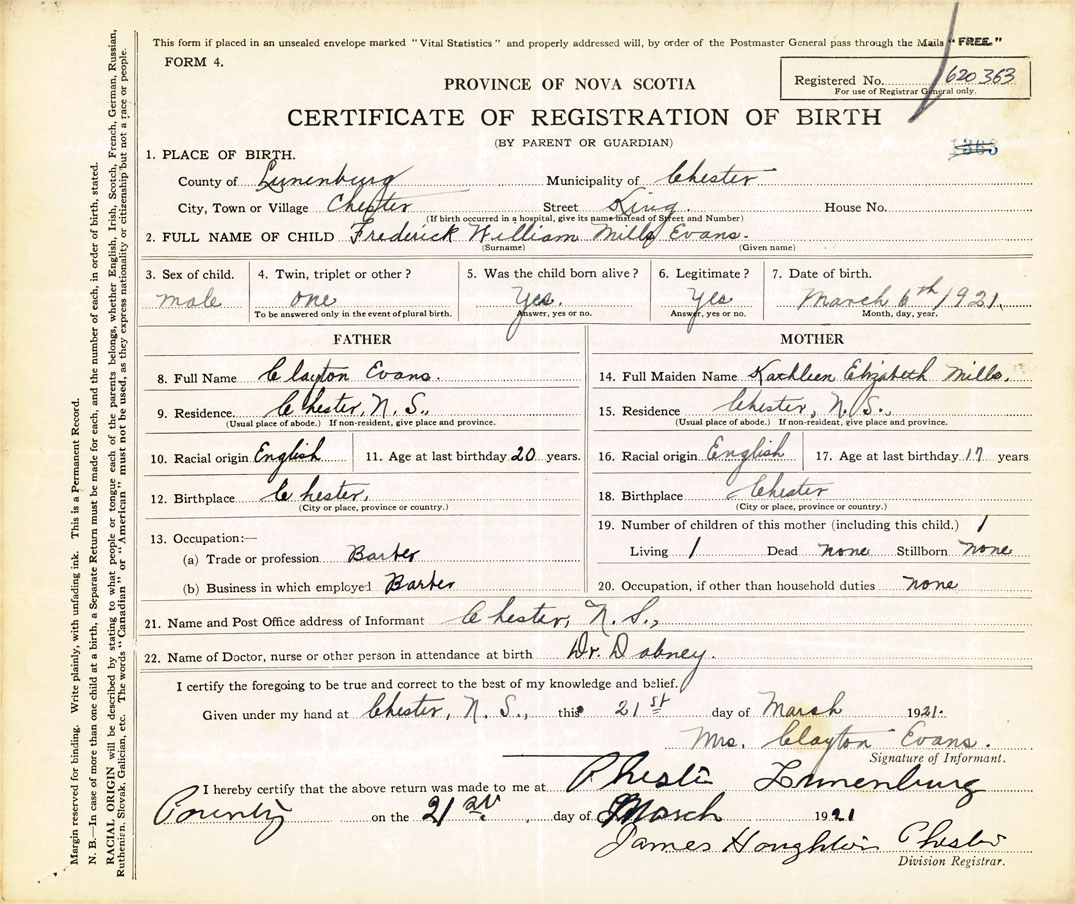 This form if placed in an unsealed envelope marked "Vital Statistics" and properly addressed will, by order of the Postmaster General pass through the Mails "FREE."
FORM 4.
Registered No. 620363
For use of Registrar General only.
PROVINCE OF NOVA SCOTIA
CERTIFICATE OF REGISTRATION OF BIRTH
(BY PARENT OR GUARDIAN)
1363
1. PLACE OF BIRTH.
County of Lunenburg Municipality of Chester
City, Town or Village Chester Street King. House No.
(If birth occurred in a hospital, give its name instead of Street and Number)
2. FULL NAME OF CHILD Frederick William Mills Evans.
(Surname) (Given name)
3. Sex of child. 4. Twin, triplet or other? 5. Was the child born alive? 6. Legitimate? 7. Date of birth.
male one Yes. Yes March 6th 1921.
To be answered only in the event of plural birth. Answer, yes or no. Answer, yes or no. Month, day, year.
FATHER
8. Full Name Clayton Evans.
9. Residence. Chester, N. S.,
(Usual place of abode.) If non-resident, give place and province.
10. Racial origin English 11. Age at last birthday 20 years.
12. Birthplace Chester.
(City or place, province or country.)
13. Occupation:—
(a) Trade or profession Barber
(b) Business in which employed Barber
MOTHER
14. Full Maiden Name Kathleen Elizabeth Mills.
15. Residence Chester, N. S.,
(Usual place of abode.) If non-resident, give place and province.
16. Racial origin English 17. Age at last birthday 17 years
18. Birthplace Chester
(City or place, province or country.)
19. Number of children of this mother (including this child.) 1
Living 1 Dead none Stillborn none
20. Occupation, if other than household duties none
21. Name and Post Office address of Informant Chester, N. S.,
22. Name of Doctor, nurse or other person in attendance at birth Dr. Dabney.
I certify the foregoing to be true and correct to the best of my knowledge and belief.
Given under my hand at Chester, N. S., this 21st day of Marsh 1921.
Mrs. Clayton Evans.
Signature of Informant.
I hereby certify that the above return was made to me at Chester Lunenburg
County on the 21st day of March 1921
James Houghton Chester
Division Registrar.
Margin reserved for binding. Write plainly, with unfading ink. This is a Permanent Record.
N. B.—In case of more than one child at a birth, a Separate Return must be made for each, and the number of each, in order of birth, stated.
RACIAL ORIGIN will be described by stating to what people or tongue each of the parents belongs, whether English, Irish, Scotch, French, German, Russian,
Ruthenien, Slovak, Galician, etc. The words "Canadian" or "American" must not be used, as they express nationality or citizenship but not a race or people.